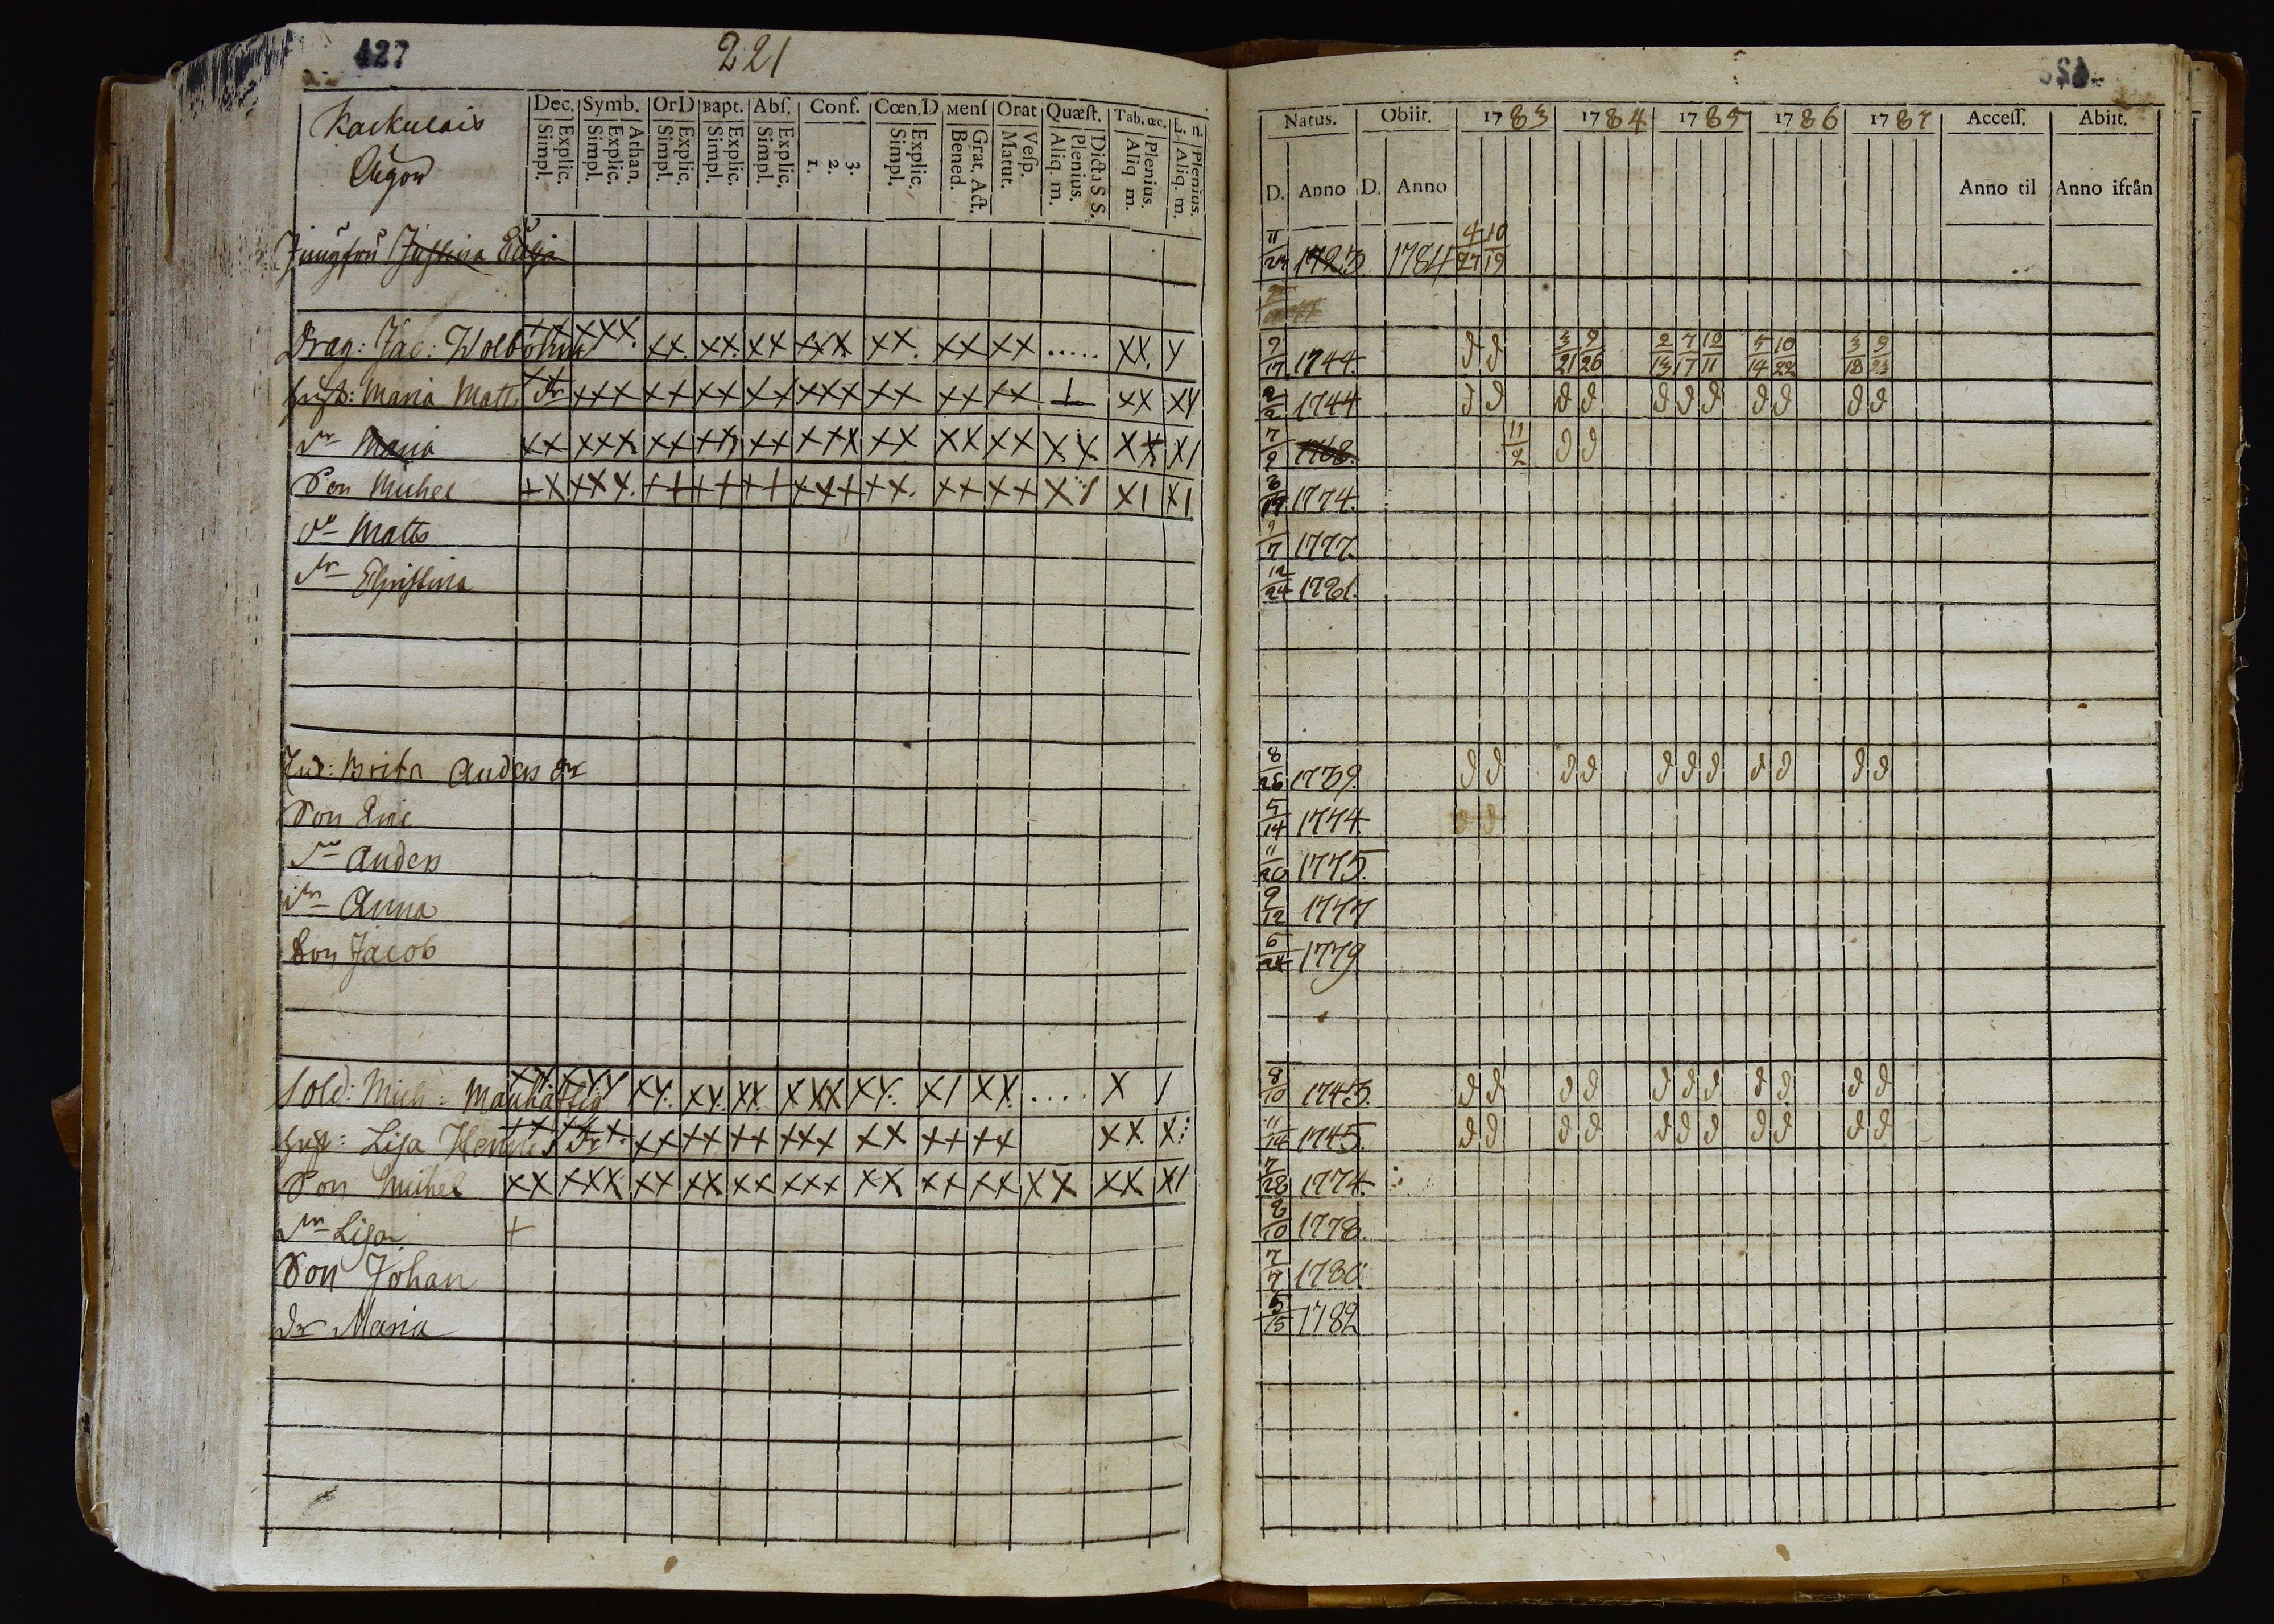 427
221
Karkulais
Ägor
Dec. Symb. OrD Bapt. Abſ. Conf. Cœn.D Menſ Orat Quæſt. Tab. œc. L. n.
Explic. Simpl. Athan. Explic. Simpl. Explic. Simpl. Explic. Simpl. Explic. Simpl. 3. 2. 1. Explic. Simpl. Grat. Act. Bened. Veſp. Matut. Dicta S S. Plenius. Aliq. m. Plenius. Aliq m. Plenius. Aliq. m.
Jungfru Justina
Drag: Jac: XX XXX. XX. XX. XX XXX XX. XX XX ..... XX. Y
Hust: Maria Matts Dr XXX XX XX XX XXX XX XX XX XX XY
Dr Maria XX XXX XX XX XX XXX XX XX XX XX XX XI
Son Michel XX XXX. XX XX XX XXX XX. XX XX XI XI XI
Do Matts
Dr Christina
Brita Anders Dr
Son Eric
Do Anders
Dr Anna
Son Jacob
Sold: Mich: Manhaftig XX XXX XX. XX. XX XXX XX. XI XX. .... X I
Hust: Lisa Dr XX XX XX XXX XX XX XX XX. X
Son Michel XX XXX XX XX XX XXX XX XX XX XX XX XI
Dr Lisa +
Son Johan
Dr Maria
Natus. Obiit. 1783 1784 1785 1786 1787 Acceſſ. Abiit.
D. Anno D. Anno Anno til Anno ifrån
11/24 1723 1784 4/27 10/19
9/17 1744. 3/21 9/26 2/13 7/17 12/11 5/14 10/22 3/18 9/23
2/2 1744
7/9 1768. 11/2
3/19 1774.
9/7 1777.
12/24 1781.
8/26 1739.
5/14 1774.
11/20 1775.
9/12 1777
6/24 1779
8/10 1743.
11/14 1745.
7/28 1774.
2/10 1778.
7/7 1780.
5/15 1782